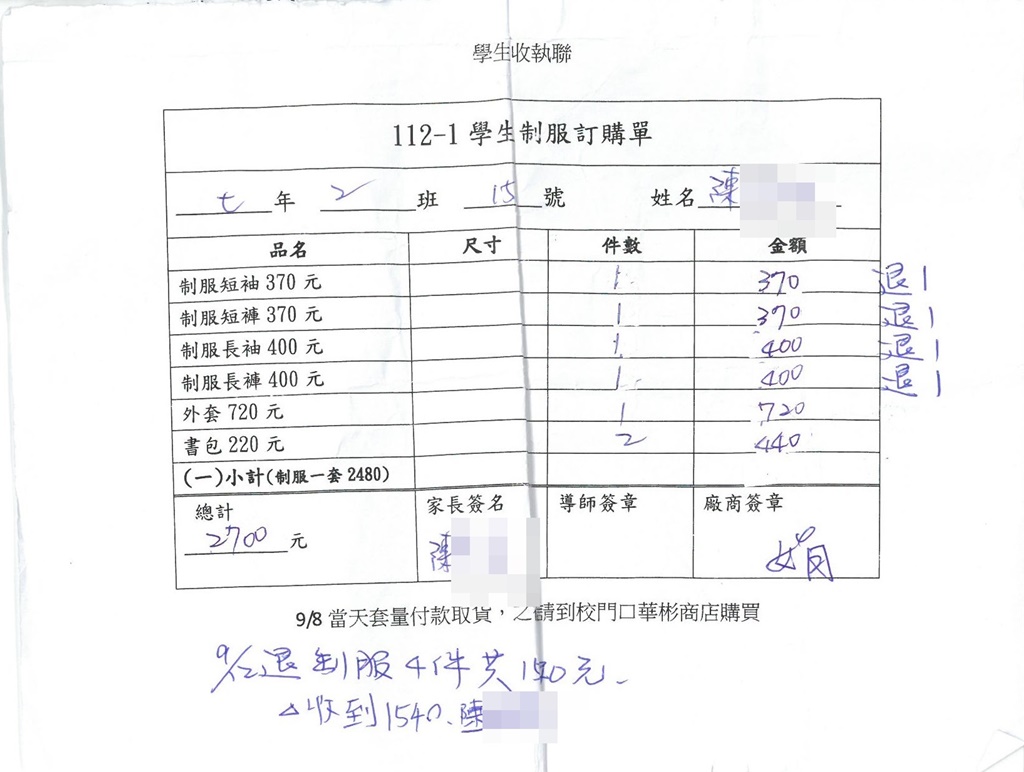 學生收執聯
112-1 學生制服訂購單
七年 2班 15號 姓名陳
品名 尺寸 件數 金額
制服短袖 370 元 1 370 退1
制服短褲 370 元 1 370 退1
制服長袖 400 元 1 400 退1
制服長褲 400 元 1 400 退1
外套 720 元 1 720
書包 220 元 2 440
(一)小計(制服一套 2480)
總計 家長簽名 導師簽章 廠商簽章
2700元 陳
9/8 當天套量付款取貨,之 請到校門口華彬商店購買
退制服4件共 元
收到1540、陳